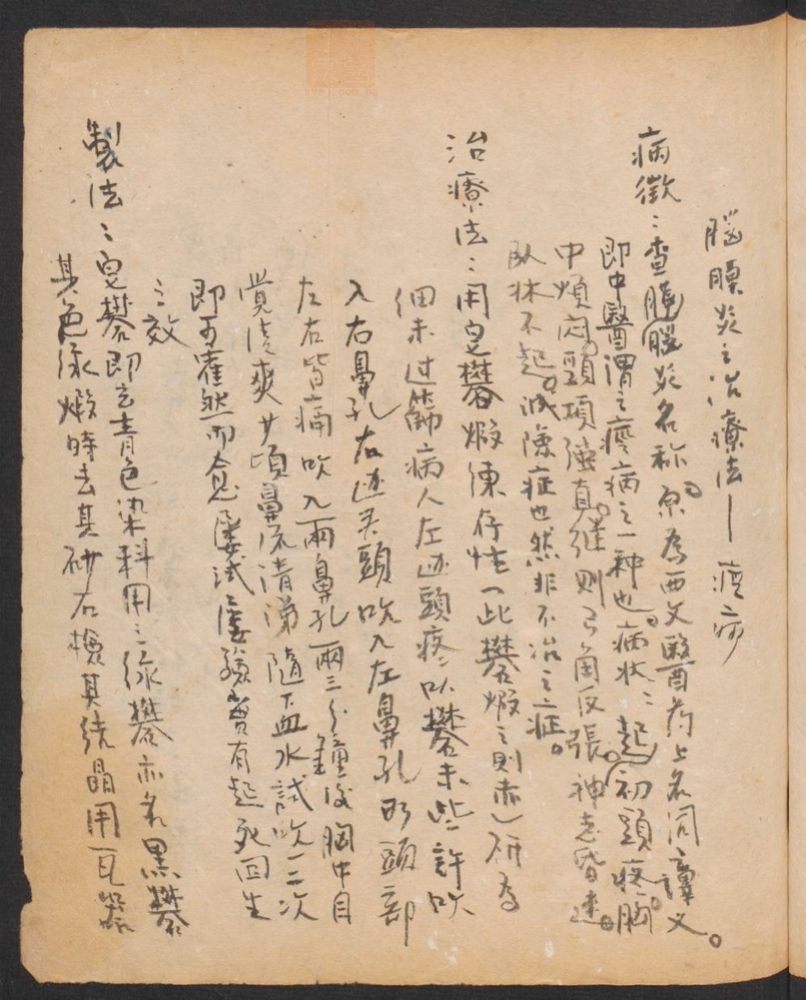 腦膜炎之治療法—痙病
病徵：查腦膜炎名称。原為西文醫葯上名詞之譯义。
即中醫謂之痙病之一种也。病状：初起頭疼。胸
中煩闷。頸項強直。繼則弓角反張。神志昏迷。
臥牀不起。诚險症也然非不治之症。
治療法：用皂礬煅煉存性（此礬煅之則赤）研為
细末过篩病人左边頭疼以礬末些許吹
入右鼻孔右边疼頭吹入左鼻孔如頭部
左右皆痛吹入兩鼻孔兩三分鐘后胸中自
覺清爽少頃鼻流清涕隨下血水試吹一二次
即可霍然而愈屡試屡驗實有起死回生
之效
製法：皂礬即去青色染料用之绿礬亦名黑礬
其色绿煅時去其砂石檢其结晶用瓦器